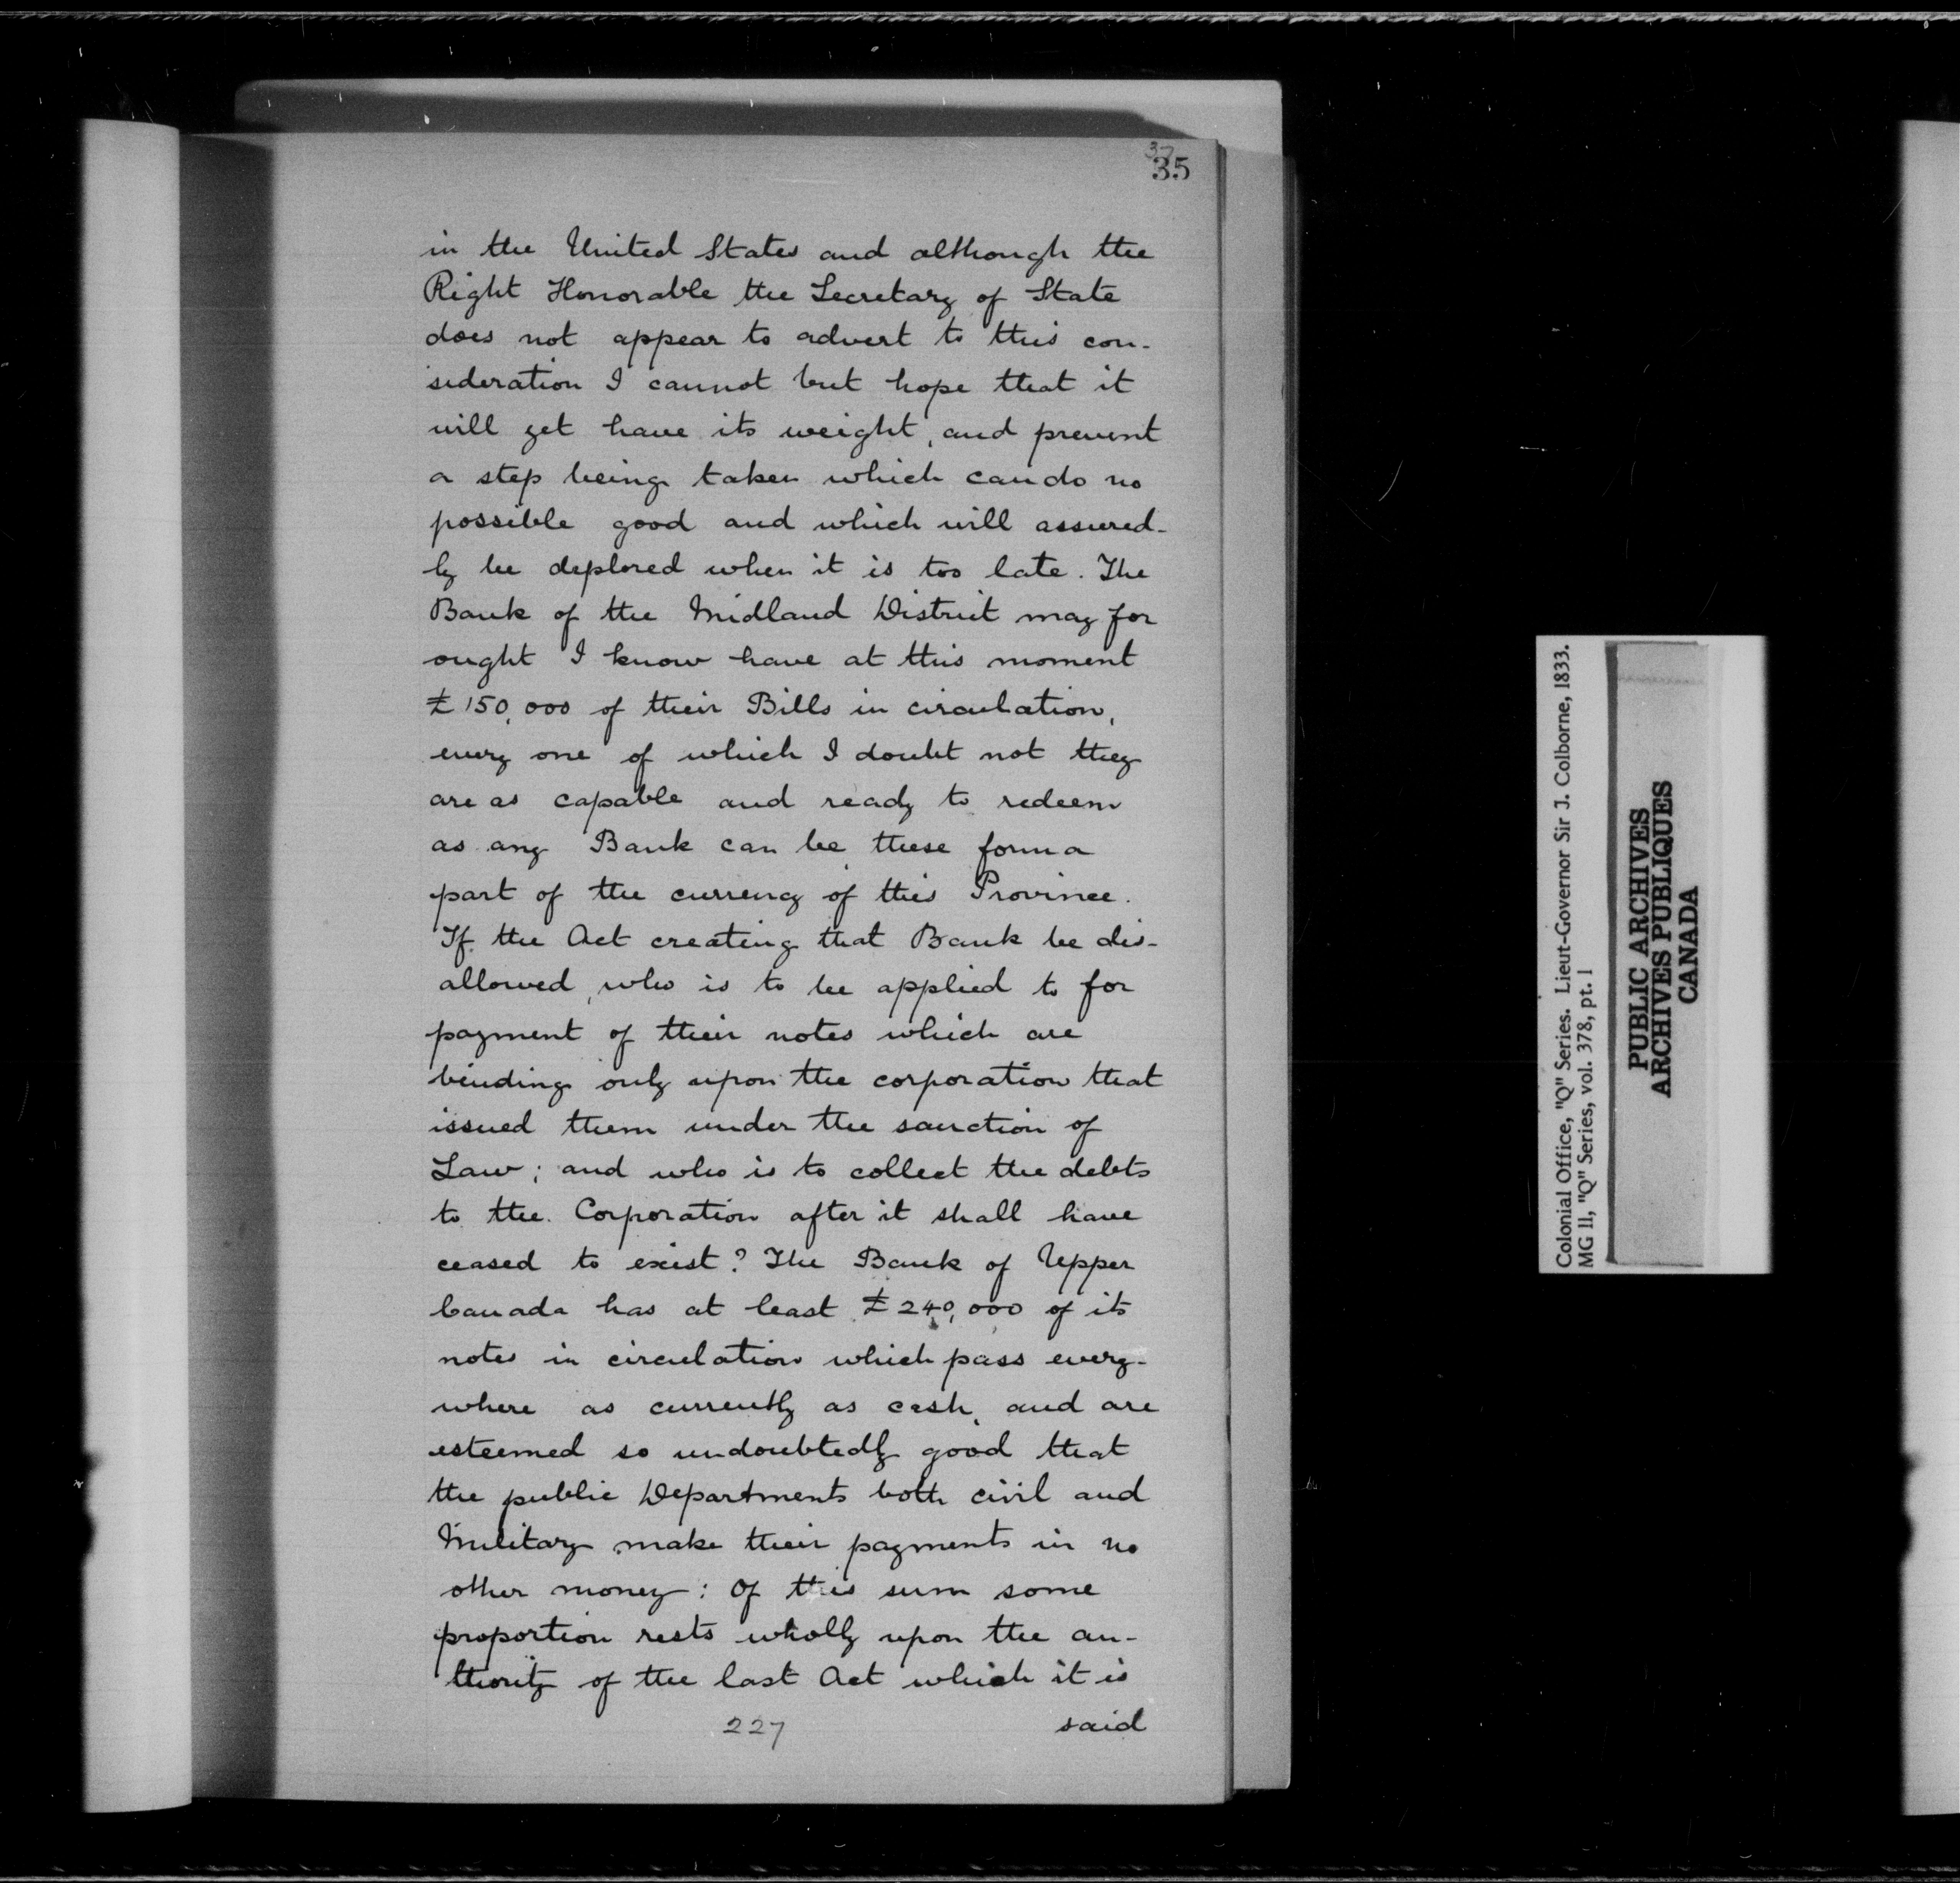 37
35
in the United States and although the
Right Honorable the Secretary of State
does not appear to advert to this con-
sideration I cannot but hope that it
will yet have its weight, and prevent
a step being taken which can do no
possible good and which will assured-
ly be deplored when it is too late. The
Bank of the Midland District may for
ought I know have at this moment
£150,000 of their Bills in circulation,
every one of which I doubt not they
are as capable and ready to redeem
as any Bank can be, these form a
part of the currency of this Province.
If the Act creating that Bank be dis-
allowed, who is to be applied to for
payment of their notes which are
binding only upon the corporation that
issued them under the sanction of
Law; and who is to collect the debts
to the Corporation after it shall have
ceased to exist? The Bank of Upper
Canada has at least £240,000 of its
notes in circulation which pass every-
where as currently as cash, and are
esteemed so undoubtedly good that
the public Departments both civil and
Military make their payments in no
other money: Of this sum some
proportion rests wholly upon the au-
thority of the last Act which it is
227 said
Colonial Office, "Q" Series. Lieut-Governor Sir J. Colborne, 1833.
MG 11, "Q" Series, vol. 378, pt. 1
PUBLIC ARCHIVES
ARCHIVES PUBLIQUES
CANADA